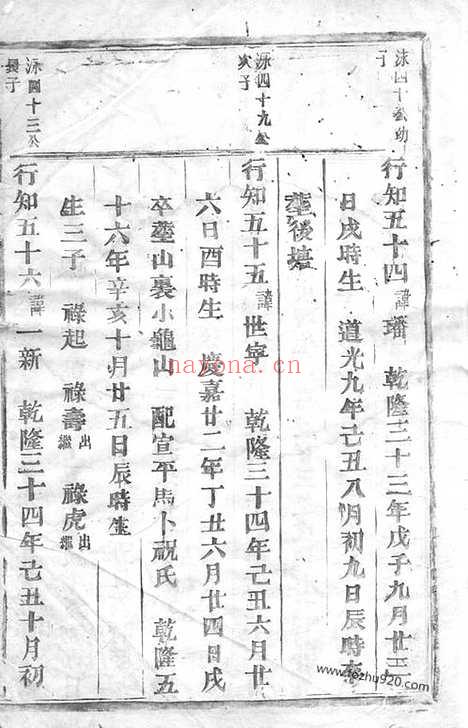 泳四十公幼
子
行知五十四諱璠 乾隆三十三年戊子九月廿三
日戌時生 道光九年己丑八月初九日辰時卒
塟後塘
泳四十九公
次子
行知五十五諱世寧 乾隆三十四年己丑六月廿
六日酉時生 慶嘉廿二年丁丑六月廿四日戌
卒塟山裏小龜山 配宣平馬卜祝氏 乾隆五
十六年辛亥十月廿五日辰時生
生三子 祿起 祿壽出繼 祿虎出繼
泳四十三公
長子
行知五十六諱一新 乾隆三十四年己丑十月初
nayona.cn
www.fozhu920.com